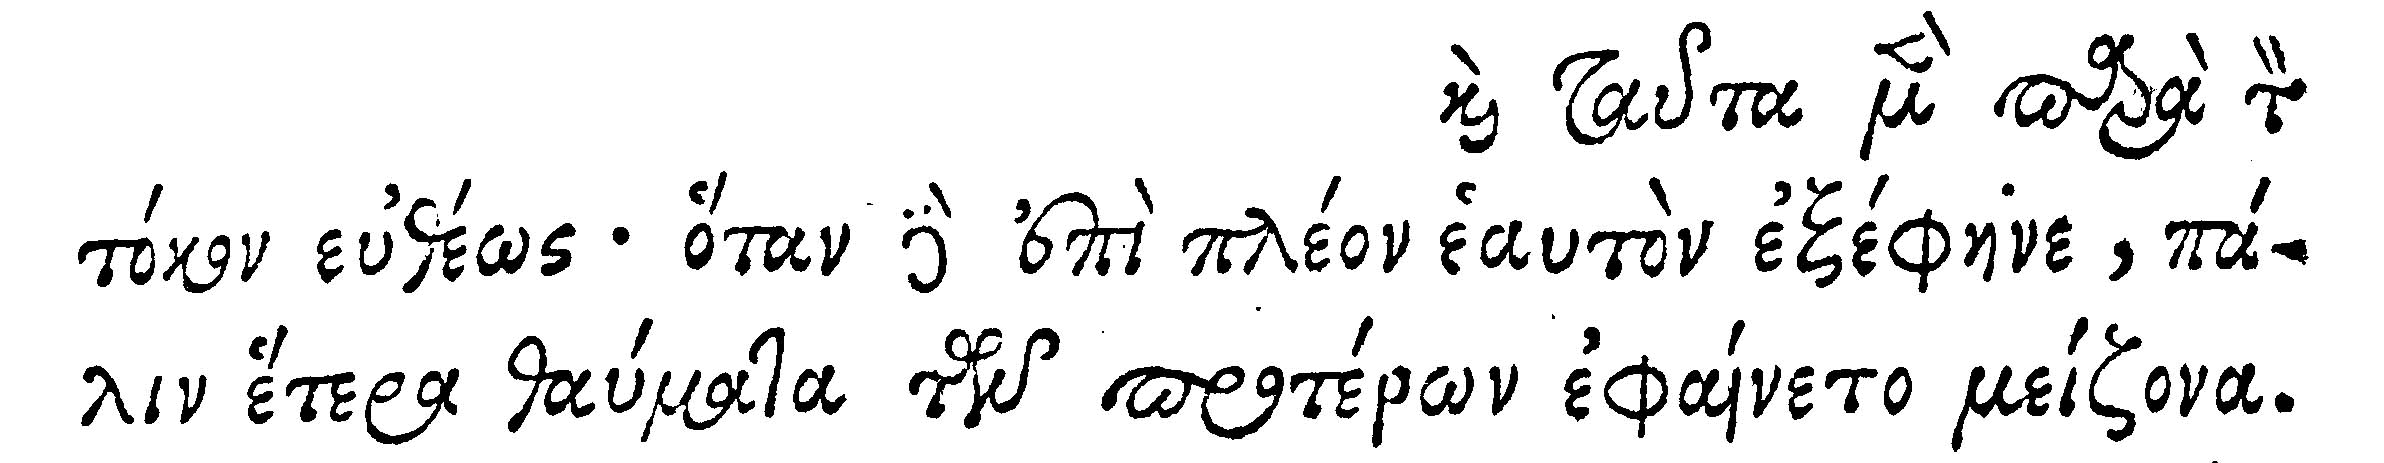 καὶ ταῦτα μὲν παρὰ τὸν
τόκον εὐθέως · ὅταν δὲ ἐπὶ πλέον ἑαυτὸν ἐξέφηνε, πά-
λιν ἕτερα θαύματα τῶν προτέρων ἐφαίνετο μείζονα.